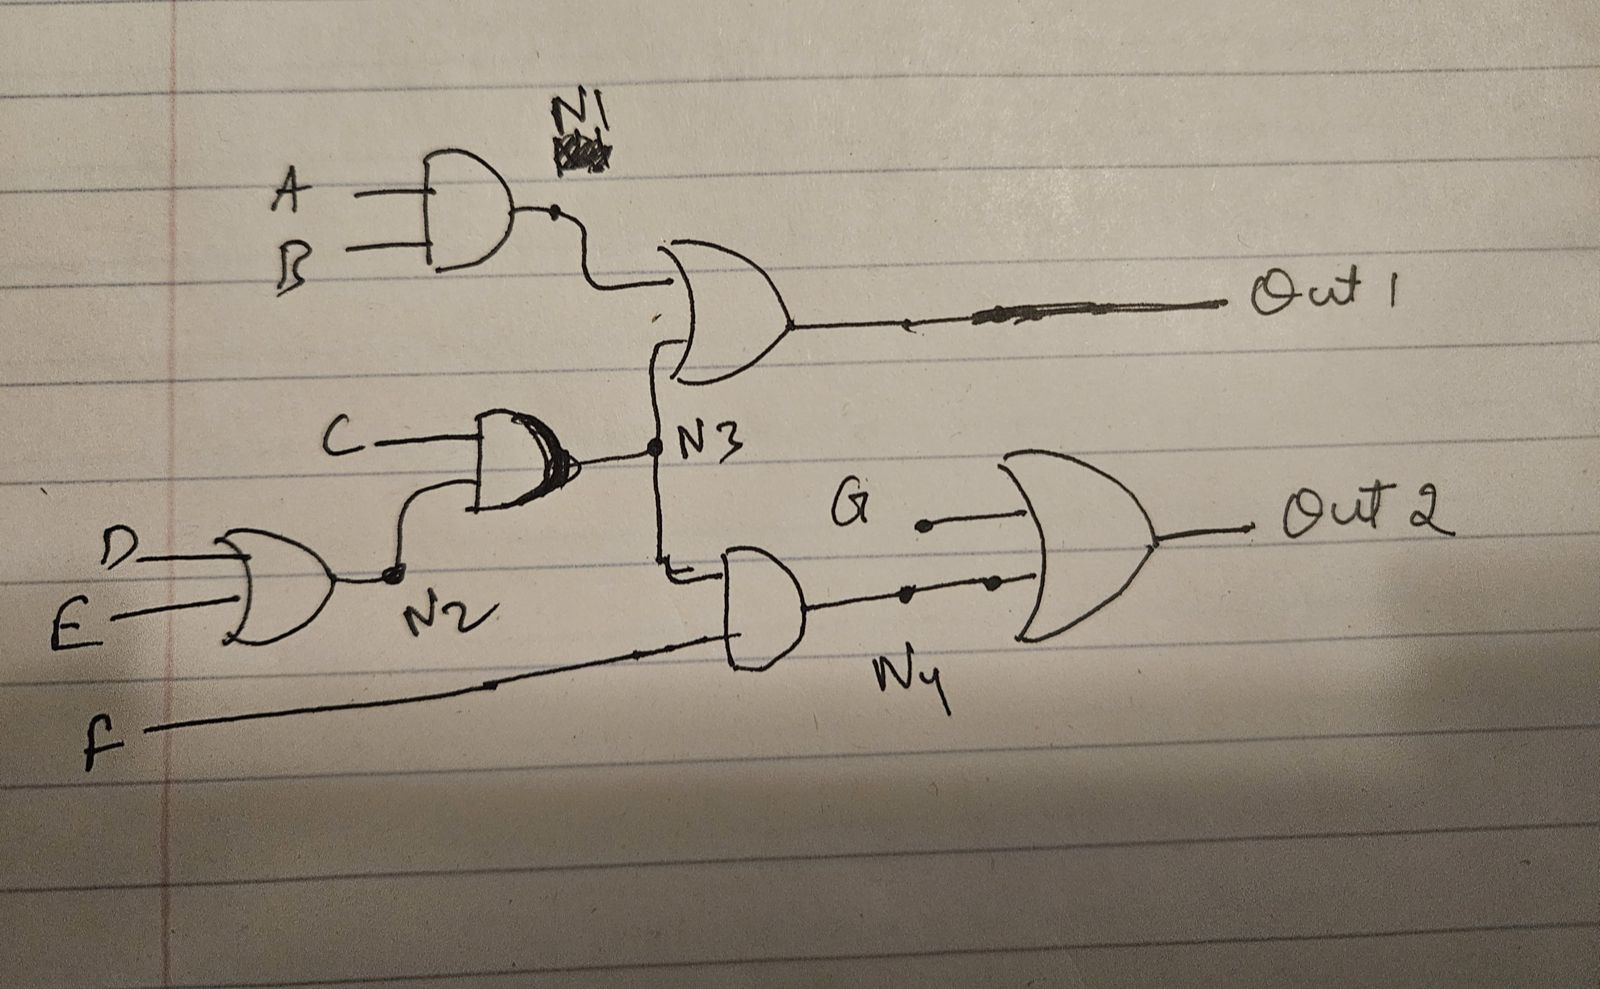 N1
A
B
Out 1
C
N3
G
Out 2
D
E
N2
N4
F